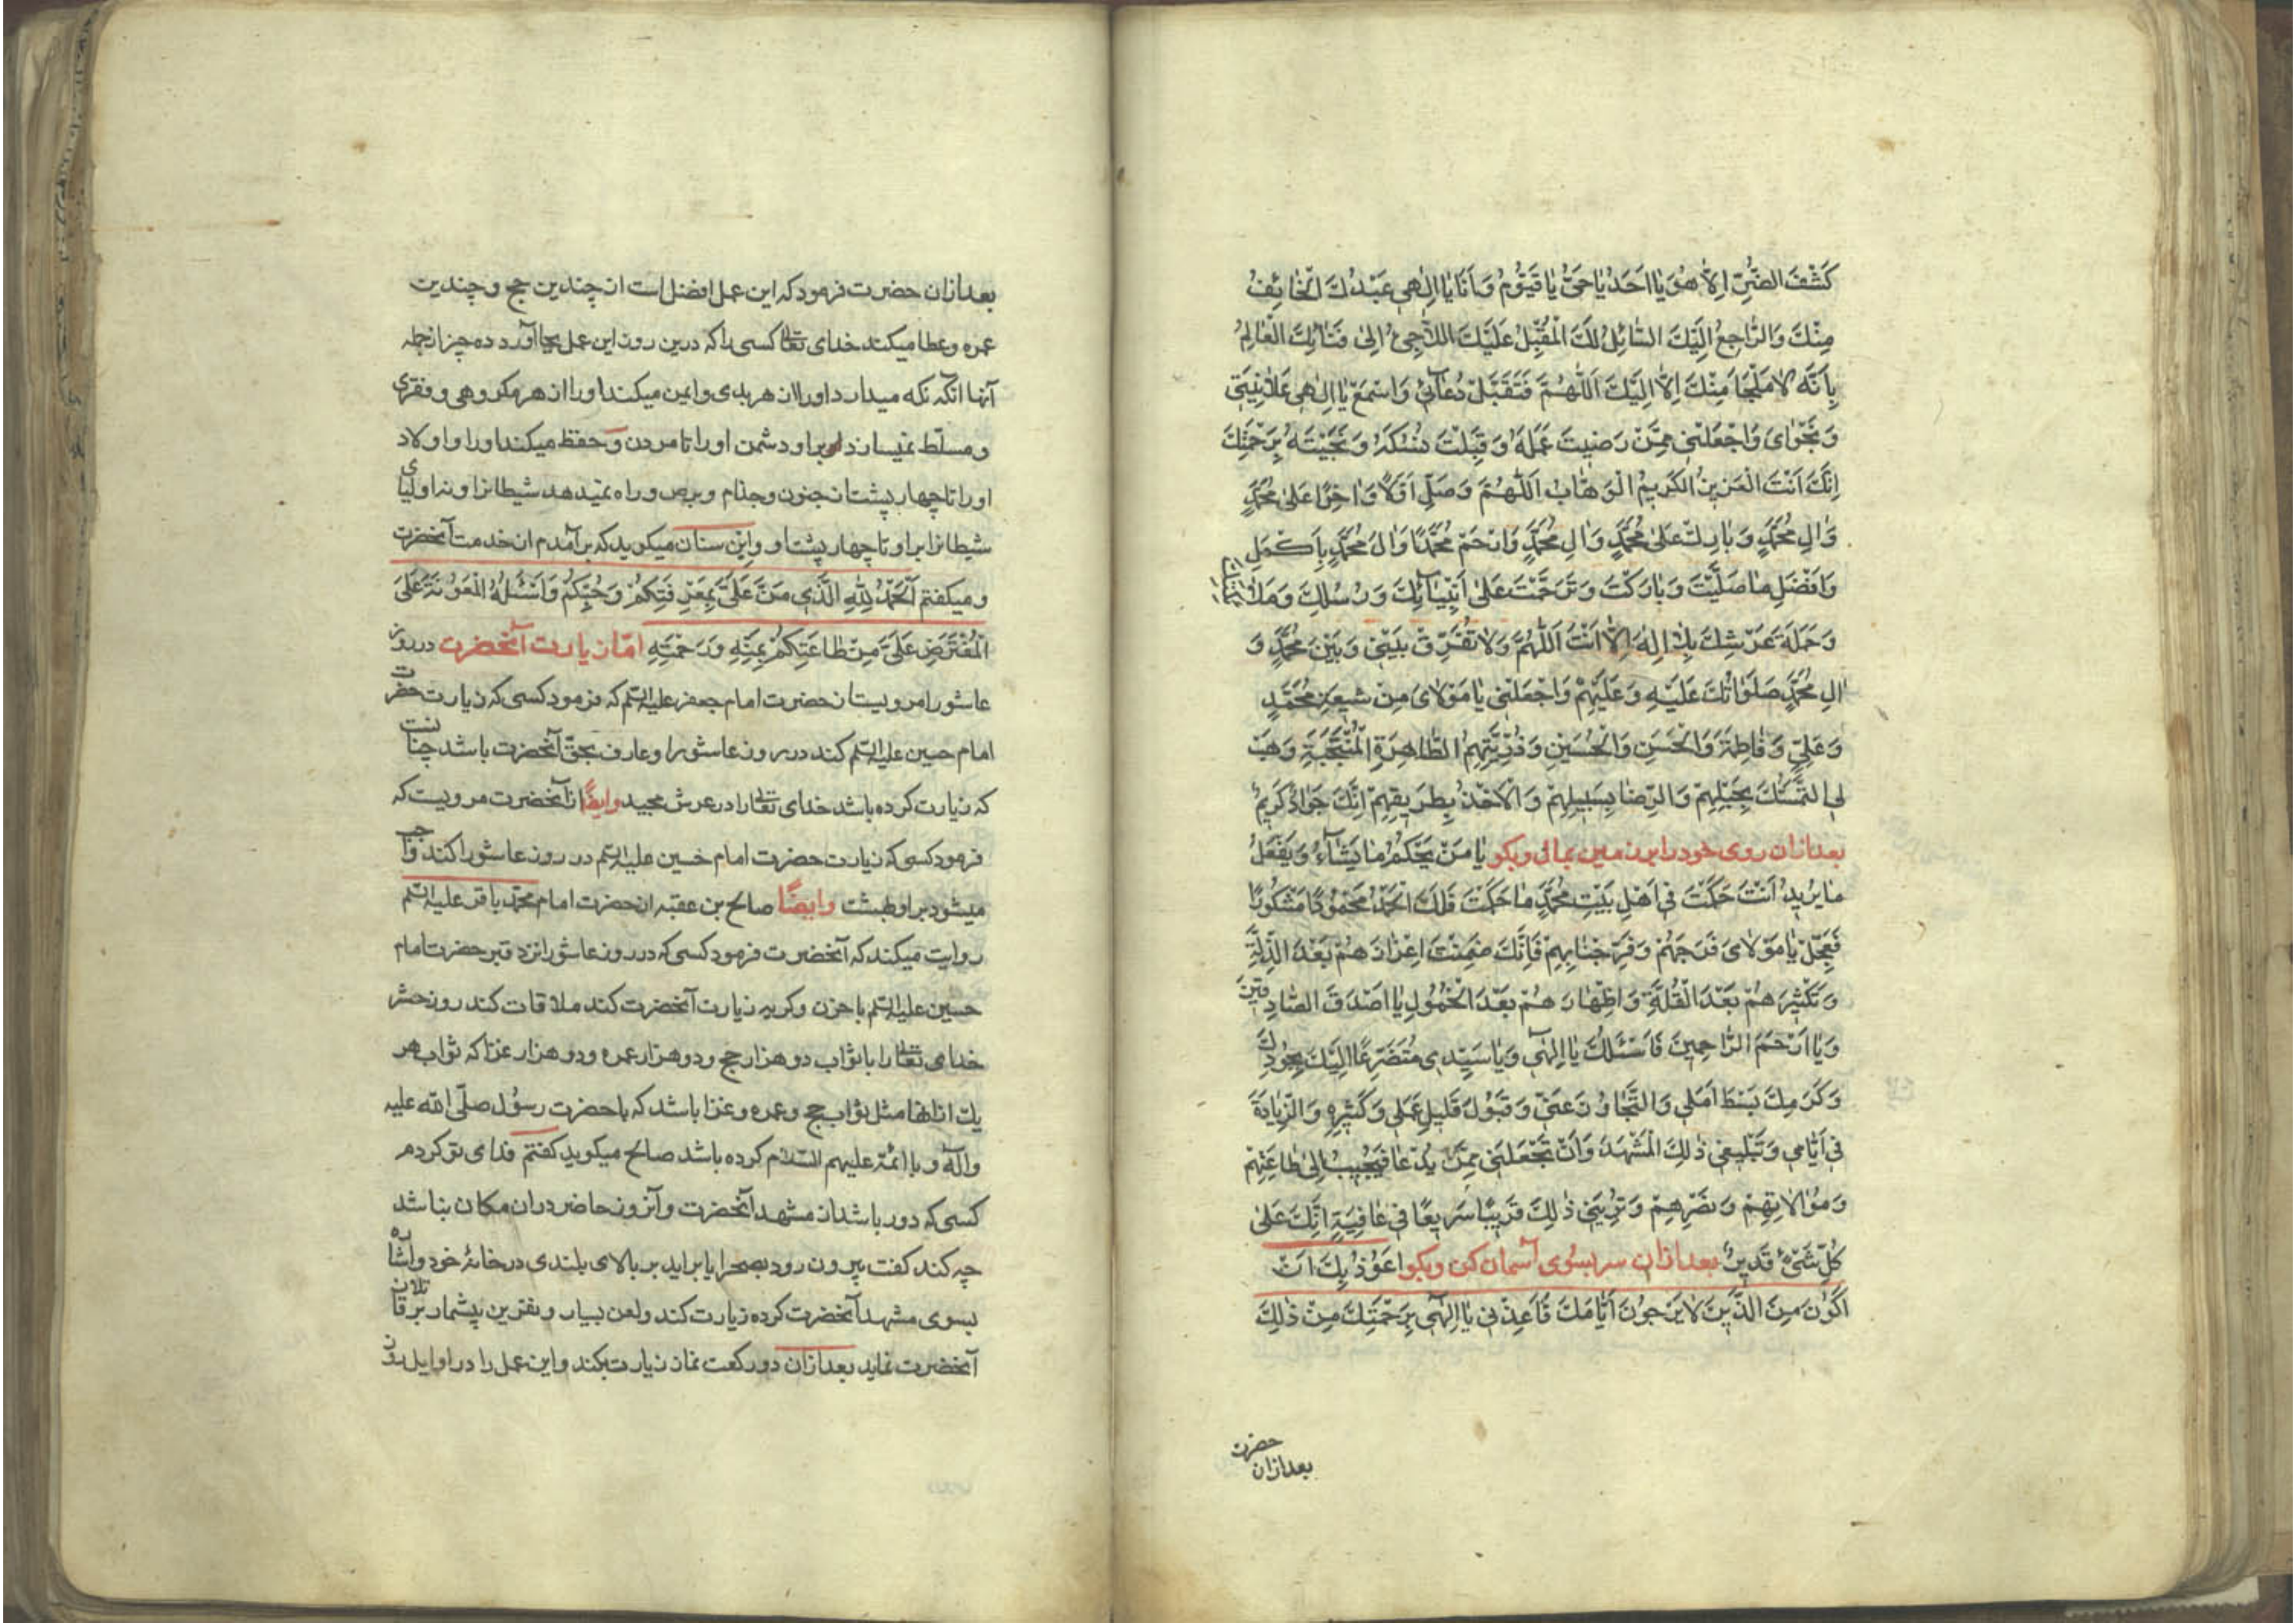 كَشْفَ الضُّرِّ اِلاّٰ هُوَ يٰا اَحَدُ يٰا حَىُّ يٰا قَيُّومُ وَ اَنَا يٰا اِلٰهِى عَبْدُكَ الْخٰائِفُ
مِنْكَ وَالرّٰاجِعُ اِلَيْكَ السّٰائِلُ لَكَ الْمُقْبِلُ عَلَيْكَ اللّٰاجِىُٔ اِلىٰ فَنٰائِكَ الْعٰالِمُ
بِاَنَّهُ لاٰ مَلْجَأَ مِنْكَ اِلاّٰ اِلَيْكَ اَللّٰهُمَّ فَتَقَبَّلْ دُعٰائِى وَاسْمَعْ يٰا اِلٰهِى عَلاٰنِيَتِى
وَ نَجْوٰاىَ وَاجْعَلْنِى مِمَّنْ رَضِيتَ عَمَلَهُ وَ قَبِلْتَ نُسُكَهُ وَ نَجَّيْتَهُ بِرَحْمَتِكَ
اِنَّكَ اَنْتَ الْعَزِيزُ الْكَرِيمُ الْوَهّٰابُ اَللّٰهُمَّ وَصَلِّ اَوَّلاً وَ اٰخِرًا عَلىٰ مُحَمَّدٍ
وَ اٰلِ مُحَمَّدٍ وَ بٰارِكْ عَلىٰ مُحَمَّدٍ وَ اٰلِ مُحَمَّدٍ وَارْحَمْ مُحَمَّدًا وَ اٰلَ مُحَمَّدٍ بِاَكْمَلِ
وَ اَفْضَلِ مٰا صَلَّيْتَ وَ بٰارَكْتَ وَ تَرَحَّمْتَ عَلىٰ اَنْبِيٰائِكَ وَ رُسُلِكَ وَ مَلاٰئِكَتِكَ
وَ حَمَلَةِ عَرْشِكَ بِلاٰ اِلٰهَ اِلاّٰ اَنْتَ اَللّٰهُمَّ وَلاٰ تُفَرِّقْ بَيْنِى وَ بَيْنَ مُحَمَّدٍ وَ
اٰلِ مُحَمَّدٍ صَلَوٰاتُكَ عَلَيْهِ وَ عَلَيْهِمْ وَاجْعَلْنِى يٰا مَوْلاٰىَ مِنْ شِيعَةِ مُحَمَّدٍ
وَ عَلِىٍّ وَ فٰاطِمَةَ وَالْحَسَنِ وَالْحُسَيْنِ وَ ذُرِّيَّتِهِمُ الطّٰاهِرَةِ الْمُنْتَجَبَةِ وَهَبْ
لِىَ التَّمَسُّكَ بِحَبْلِهِمْ وَالرِّضٰا بِسَبِيلِهِمْ وَالْاَخْذَ بِطَرِيقِهِمْ اِنَّكَ جَوٰادٌ كَرِيمٌ
بعد ازان روى خود را بر زمين بمالى و بكو يٰا مَنْ يَحْكُمُ مٰا يَشٰاءُ وَ يَفْعَلُ
مٰا يُرِيدُ اَنْتَ حَكَمْتَ فِى اَهْلِ بَيْتِ مُحَمَّدٍ مٰا حَكَمْتَ فَلَكَ الْحَمْدُ مَحْمُودًا مَشْكُورًا
فَعَجِّلْ يٰا مَوْلاٰىَ فَرَجَهُمْ وَ فَرَجَنٰا بِهِمْ فَاِنَّكَ ضَمِنْتَ اِعْزٰازَهُمْ بَعْدَ الذِّلَّةِ
وَ تَكْثِيرَهُمْ بَعْدَ الْقِلَّةِ وَ اِظْهٰارَهُمْ بَعْدَ الْخُمُولِ يٰا اَصْدَقَ الصّٰادِقِينَ
وَ يٰا اَرْحَمَ الرّٰاحِمِينَ فَاَسْئَلُكَ يٰا اِلٰهِى وَ يٰا سَيِّدِى مُتَضَرِّعًا اِلَيْكَ بِجُودِكَ
وَ كَرَمِكَ بَسْطَ اَمَلِى وَالتَّجٰاوُزَ عَنِّى وَ قَبُولَ قَلِيلِ عَمَلِى وَ كَثِيرِهِ وَالزِّيٰادَةَ
فِى اَيّٰامِى وَ تَبْلِيغِى ذٰلِكَ الْمَشْهَدَ وَ اَنْ تَجْعَلَنِى مِمَّنْ يُدْعٰا فَيُجِيبُ اِلىٰ طٰاعَتِهِمْ
وَ مُوٰالاٰتِهِمْ وَ نَصْرِهِمْ وَ تُرِيَنِى ذٰلِكَ قَرِيبًا سَرِيعًا فِى عٰافِيَةٍ اِنَّكَ عَلىٰ
كُلِّ شَىْءٍ قَدِيرٌ بعد ازان سر بسوى آسمان كن و بكو اَعُوذُ بِكَ اَنْ
اَكُونَ مِنَ الَّذِينَ لاٰ يَرْجُونَ اَيّٰامَكَ فَاَعِذْنِى يٰا اِلٰهِى بِرَحْمَتِكَ مِنْ ذٰلِكَ
حضرت
بعد ازان
بعد ازان حضرت فرمود كه اين عمل افضل است از چندين حج و چندين
عمره و عطا ميكند خداى تعالى كسى را كه درين روز اين عمل بجا آورد ده چيز از جمله
آنها آنكه نكه ميدارد او را از هر بدى و ايمن ميكند او را از هر مكروهى و فقرى
و مسلّط نميسازد بر او دشمن او را تا مردن و حفظ ميكند او را و اولاد
او را تا چهار پشت از جنون و جذام و برص و راه نميدهد شيطانرا و نه اولياى
شيطانرا بر او تا چهار پشت او و ابن سنان ميكويد كه برآمدم از خدمت آنحضرت
و ميكفتم اَلْحَمْدُ لِلّٰهِ الَّذِى مَنَّ عَلَىَّ بِمَعْرِفَتِكُمْ وَ حُبِّكُمْ وَ اَسْئَلُهُ الْمَعُونَةَ عَلَى
الْمُفْتَرَضِ عَلَىَّ مِنْ طٰاعَتِكُمْ بِمَنِّهِ وَ رَحْمَتِهِ امّا زيارت آنحضرت در روز
عاشورا مرويست از حضرت امام جعفر عليه السلم كه فرمود كسى كه زيارت حضرت
امام حسين عليه السلم كند در روز عاشورا و عارف بحقّ آنحضرت باشد چنانست
كه زيارت كرده باشد خداى تعالى را در عرش مجيد و ايضًا از آنحضرت مرويست كه
فرمود كسى كه زيارت حضرت امام حسين عليه السلم در روز عاشورا كند واجب
ميشود بر او بهشت و ايضًا صالح بن عقبه از حضرت امام محمّد باقر عليه السلم
روايت ميكند كه آنحضرت فرمود كسى كه در روز عاشورا نزد قبر حضرت امام
حسين عليه السلم با حزن و كريه زيارت آنحضرت كند ملاقات كند روز حشر
خداى تعالى را با ثواب دو هزار حج و دو هزار عمره و دو هزار غزا كه ثواب هر
يك ازانها مثل ثواب حج و عمره و غزا باشد كه با حضرت رسول صلّى الله عليه
و آله و با ائمّه عليهم السلام كرده باشد صالح ميكويد كفتم فداى تو كردم
كسى كه دور باشد از مشهد آنحضرت و آنروز حاضر دران مكان نباشد
چه كند كفت بيرون رود بصحرا يا برايد بر بالاى بلندى در خانهٔ خود و اشاره
بسوى مشهد آنحضرت كرده زيارت كند و لعن بسيار و نفرين بيشمار بر قاتلان
آنحضرت نمايد بعد ازان دو ركعت نماز زيارت بكند و اين عمل را در اوايل روز